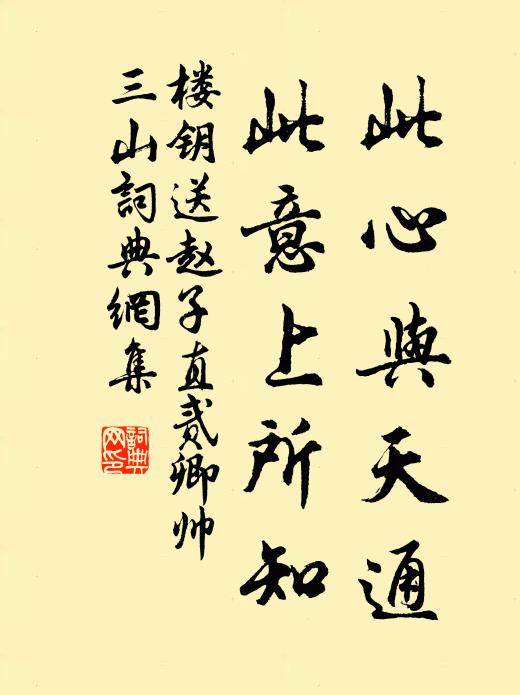 此心與天通
此意上所知
楼钥送赵子直贰卿帅
三山詞典網集
詞典
网印